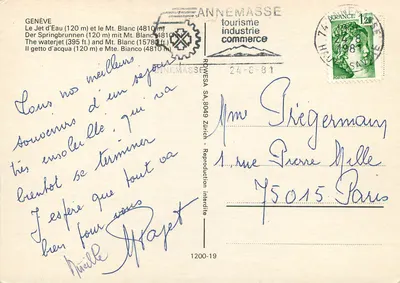 GENÈVE
Le Jet d'Eau (120 m) et le Mt. Blanc (4810 m)
Der Springbrunnen (120 m) mit Mt. Blanc (4810 m)
The waterjet (395 ft.) and Mt. Blanc (15782 ft.)
Il getto d'acqua (120 m) e Mte. Bianco (4810 m)
ANNEMASSE
tourisme
industrie
commerce
24-8-81
FRANCE
1,20
74
1981
Tous nos meilleurs
souvenirs d'un séjour
très ensoleillé, qui va
bientôt se terminer
J'espère que tout va
bien pour vous
Mireille
ROWESA SA, 8049 Zürich - Reproduction interdite
Mme Prégermain
1, rue Pierre Mille
75015 Paris
1200-19